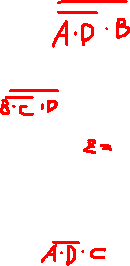 A·D·B
B·C·D
A·D·C